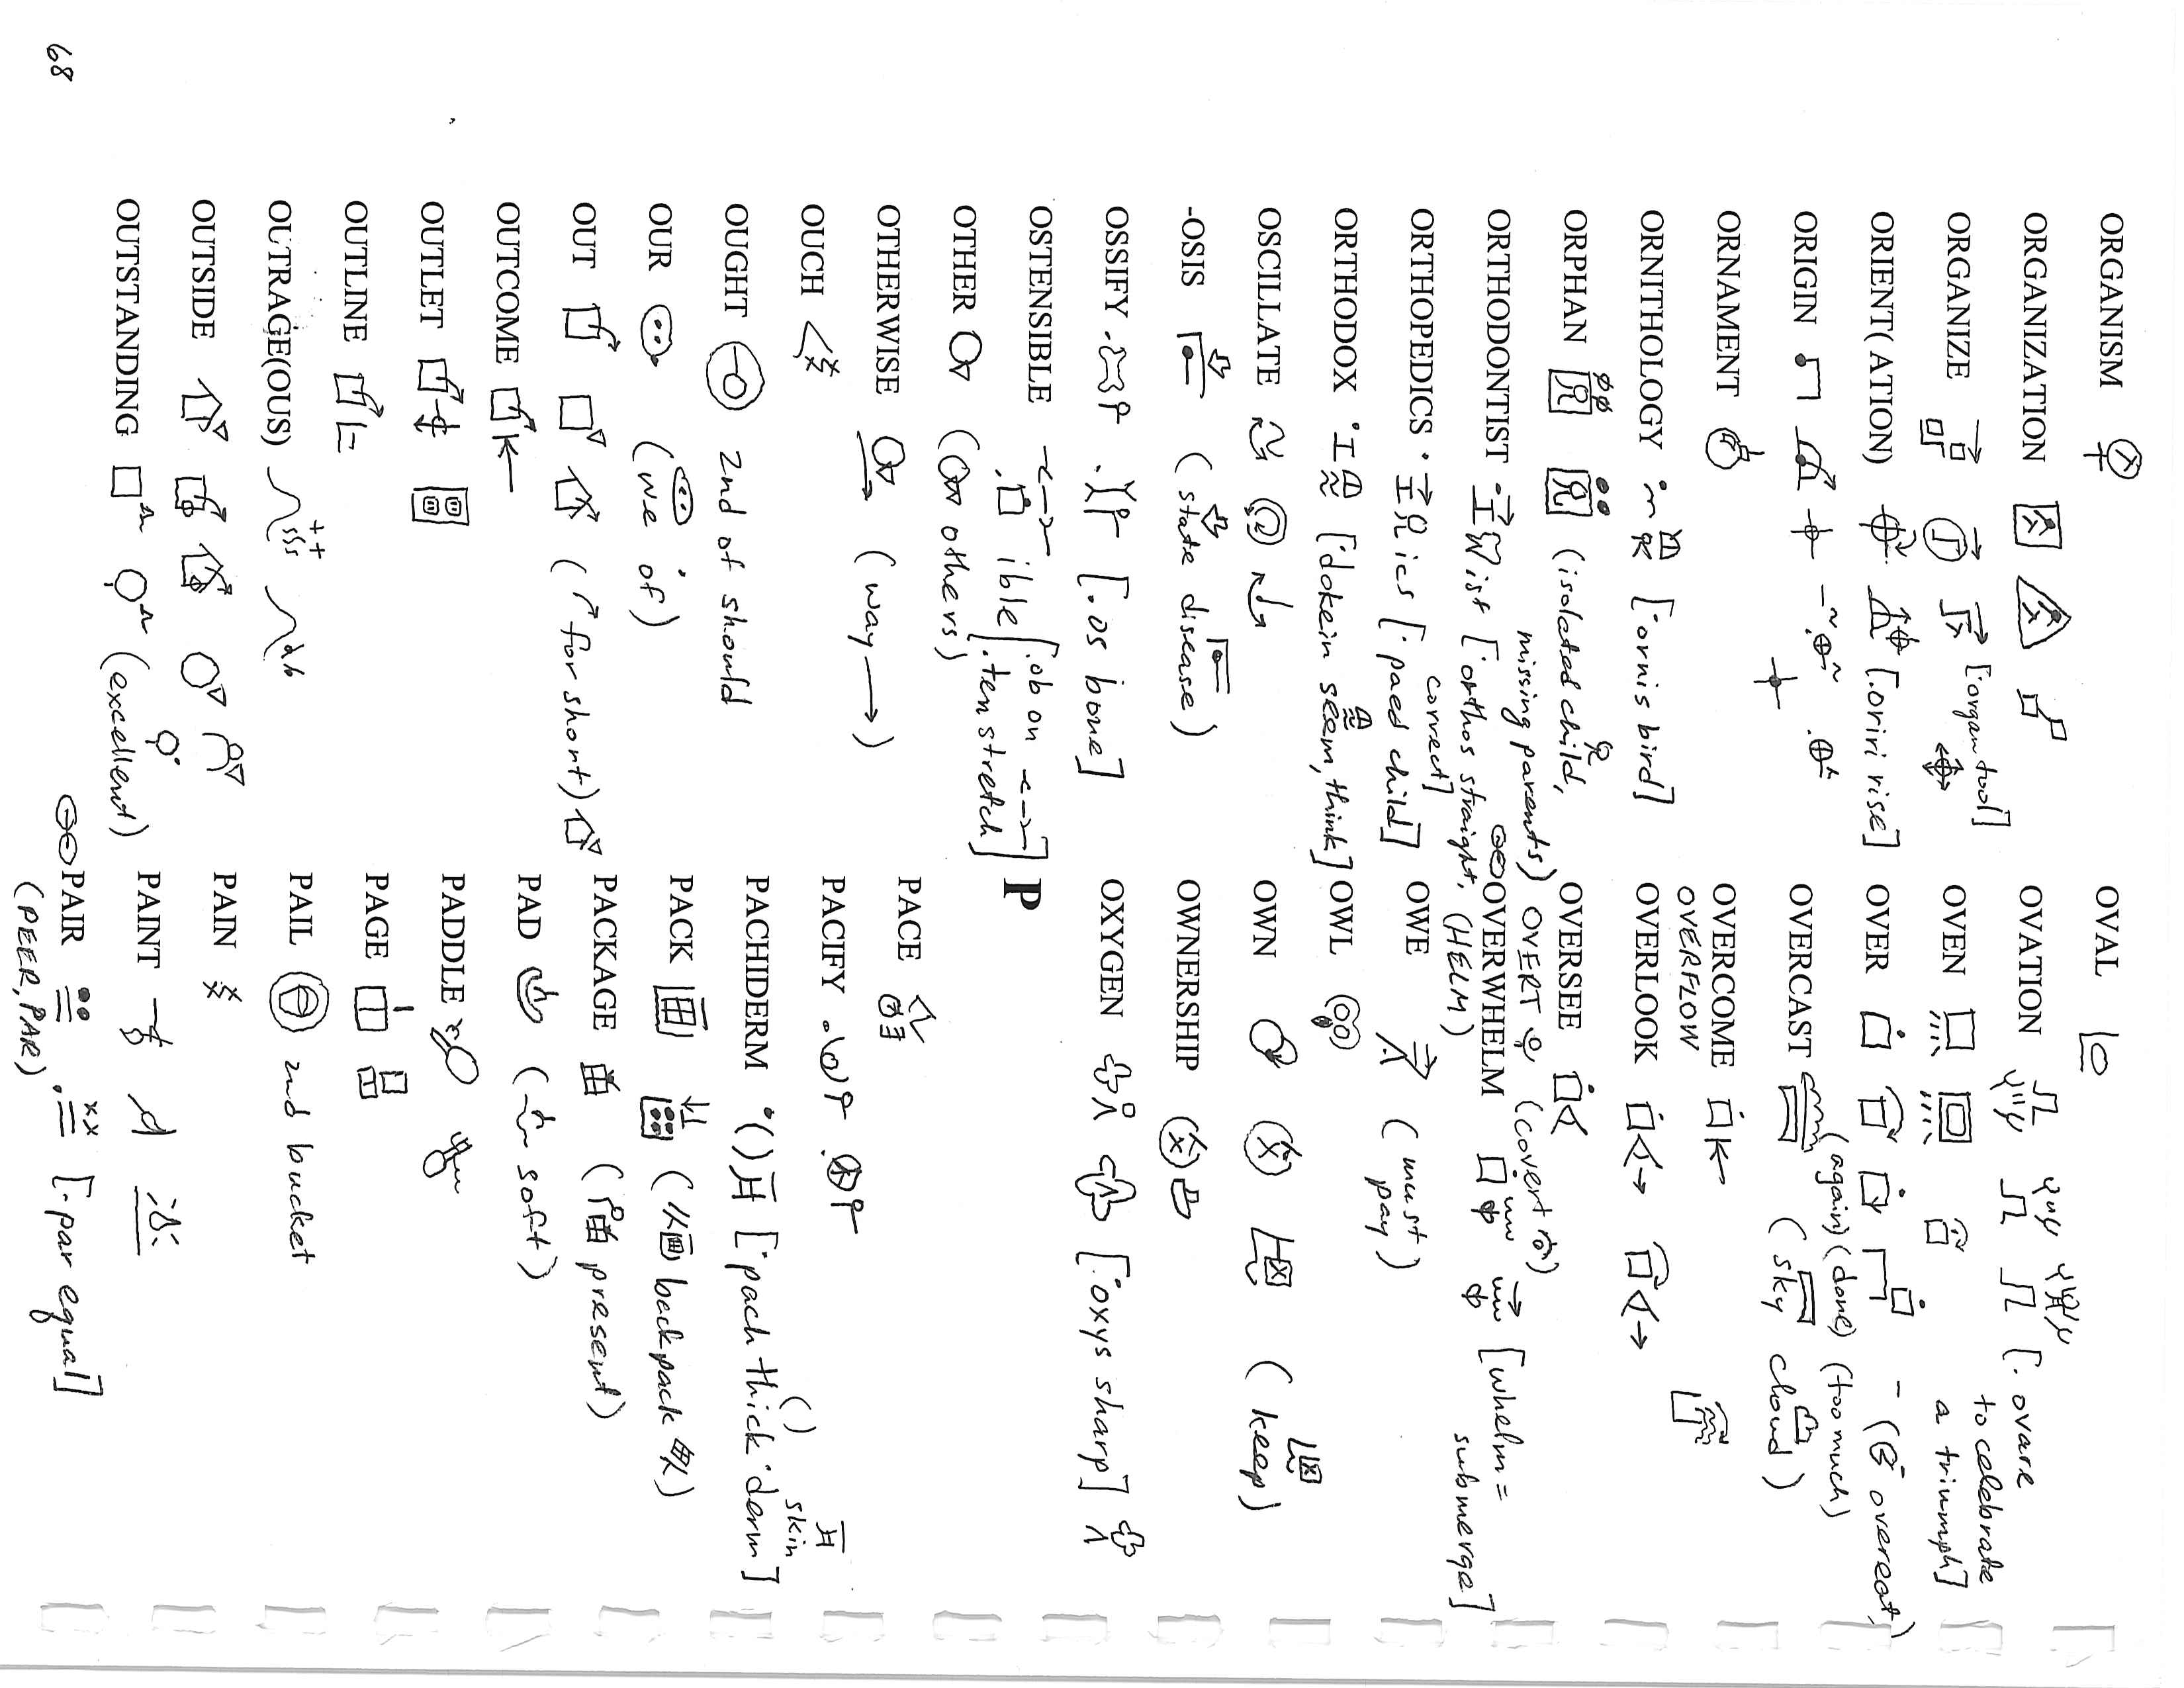 ORGANISM
ORGANIZATION
ORGANIZE ['organ tool]
ORIENT(ATION) [.oriri rise]
ORIGIN
ORNAMENT
ORNITHOLOGY ['ornis bird]
ORPHAN (isolated child, missing parents)
ORTHODONTIST ist ['orthos straight, correct]
ORTHOPEDICS ics ['paed child]
ORTHODOX ['dokein seem, think]
OSCILLATE
-OSIS (state disease)
OSSIFY [.os bone]
OSTENSIBLE ible [.ob on .ten stretch]
OTHER (others)
OTHERWISE (way →)
OUCH
OUGHT 2nd of should
OUR (we of)
OUT (for short)
OUTCOME
OUTLET
OUTLINE
OUTRAGE(OUS)
OUTSIDE
OUTSTANDING (excellent)
OVAL
OVATION [. ovare to celebrate a triumph]
OVEN
OVER (again) (done) (too much) - (overeat)
OVERCAST (sky cloud)
OVERCOME
OVERFLOW
OVERLOOK
OVERSEE
OVERT (covert)
OVERWHELM [whelm = submerge]
(HELM)
OWE (must pay)
OWL
OWN (keep)
OWNERSHIP
OXYGEN ['oxys sharp]
P
PACE
PACIFY
PACHIDERM ['pach thick 'derm skin]
PACK (backpack)
PACKAGE (present)
PAD (soft)
PADDLE
PAGE
PAIL 2nd bucket
PAIN
PAINT
PAIR [.par equal]
(PEER, PAR)
68